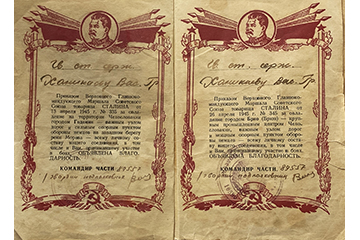 Гв. ст. серж.
Вас. Гр.
Приказом Верховного Главно-
командующего Маршала Советского
Союза товарища СТАЛИНА от
апреля 1945 г. № 335 за овла-
дение на территории Чехословакии
городом Годонин — важным узлом
дорог и сильным опорным пунктом
обороны немцев на западном берегу
реки Морава — всему личному сос-
таву нашего соединения, в том
числе и Вам, принимавшему участие
в боях, ОБЪЯВЛЕНА БЛАГО-
ДАРНОСТЬ.
КОМАНДИР ЧАСТИ
Гвардии подполковник
Гв. ст. серж.
Вас. Гр
Приказом Верховного Главно-
командующего Маршала Советского
Союза товарища СТАЛИНА от
26 апреля 1945 г. № 345 за овла-
дение городом Брно (Брюнн) — круп-
ным промышленным центром Чехо-
словакии, важным узлом дорог
и мощным опорным пунктом оборо-
ны немцев — всему личному соста-
ву нашего соединения, в том числе
и Вам, принимавшему участие в боях,
ОБЪЯВЛЕНА БЛАГОДАРНОСТЬ.
КОМАНДИР ЧАСТИ
Гвардии подполковник